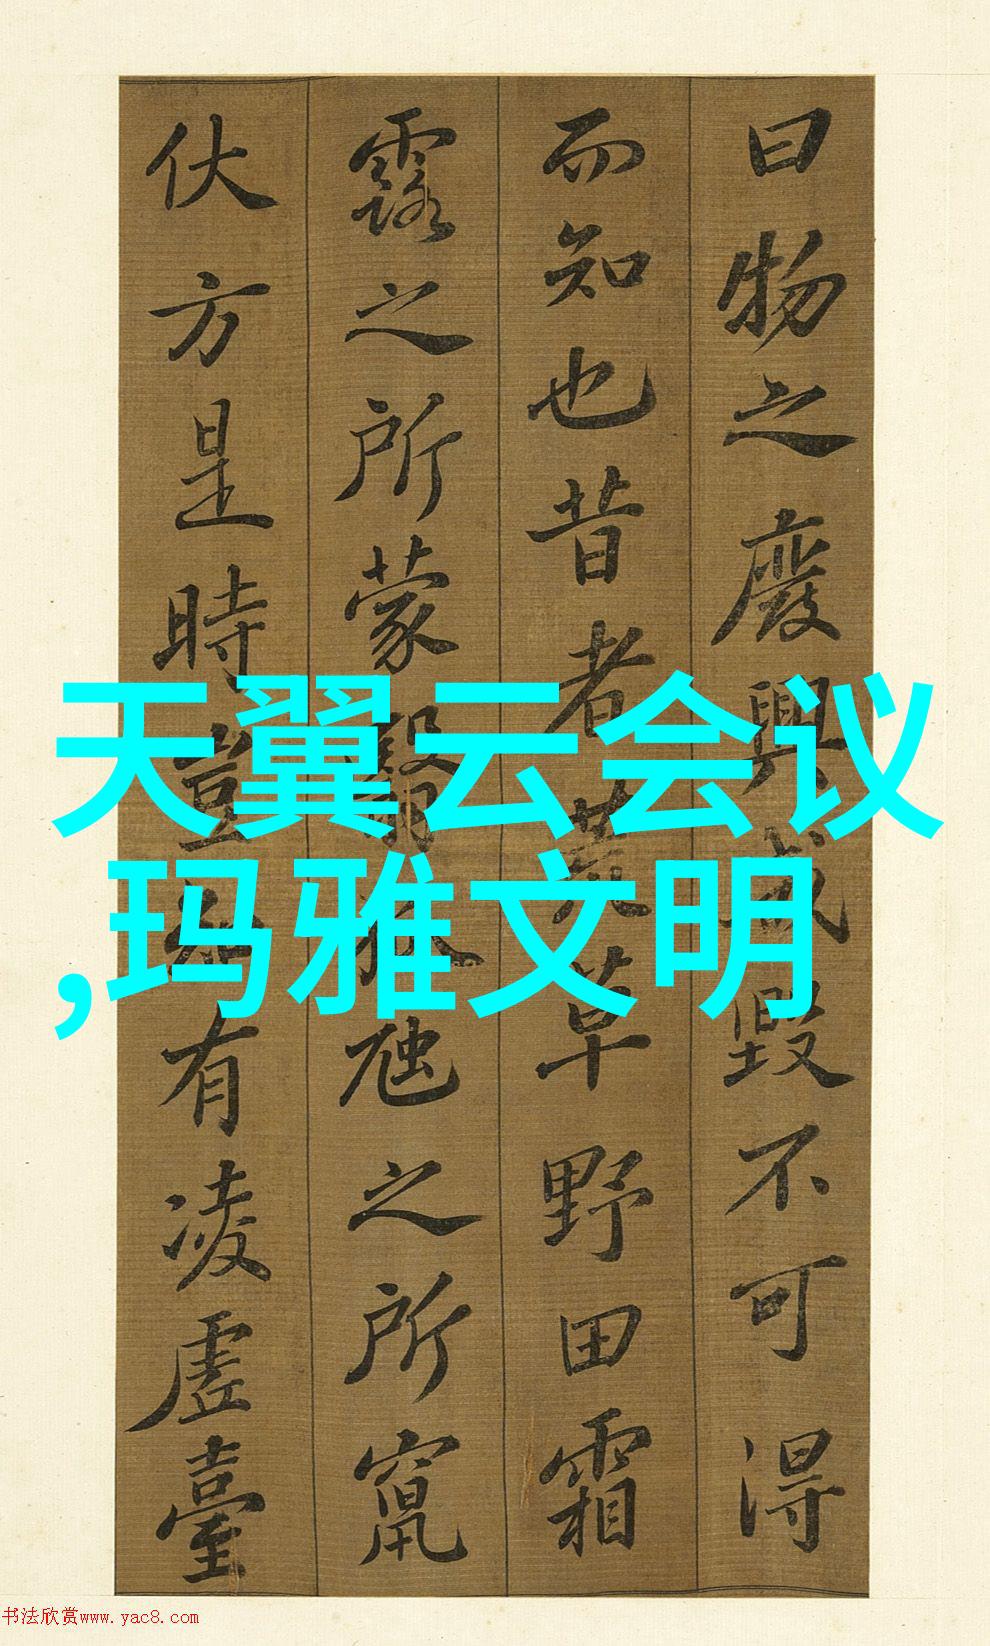 曰物之廢興成毀不可得
而知也昔者荒草野田霜
露之所蒙翳狐虺之所竄
伏方是時豈知有凌虛臺
天翼云会议
,玛雅文明
书法欣赏www.yac8.com